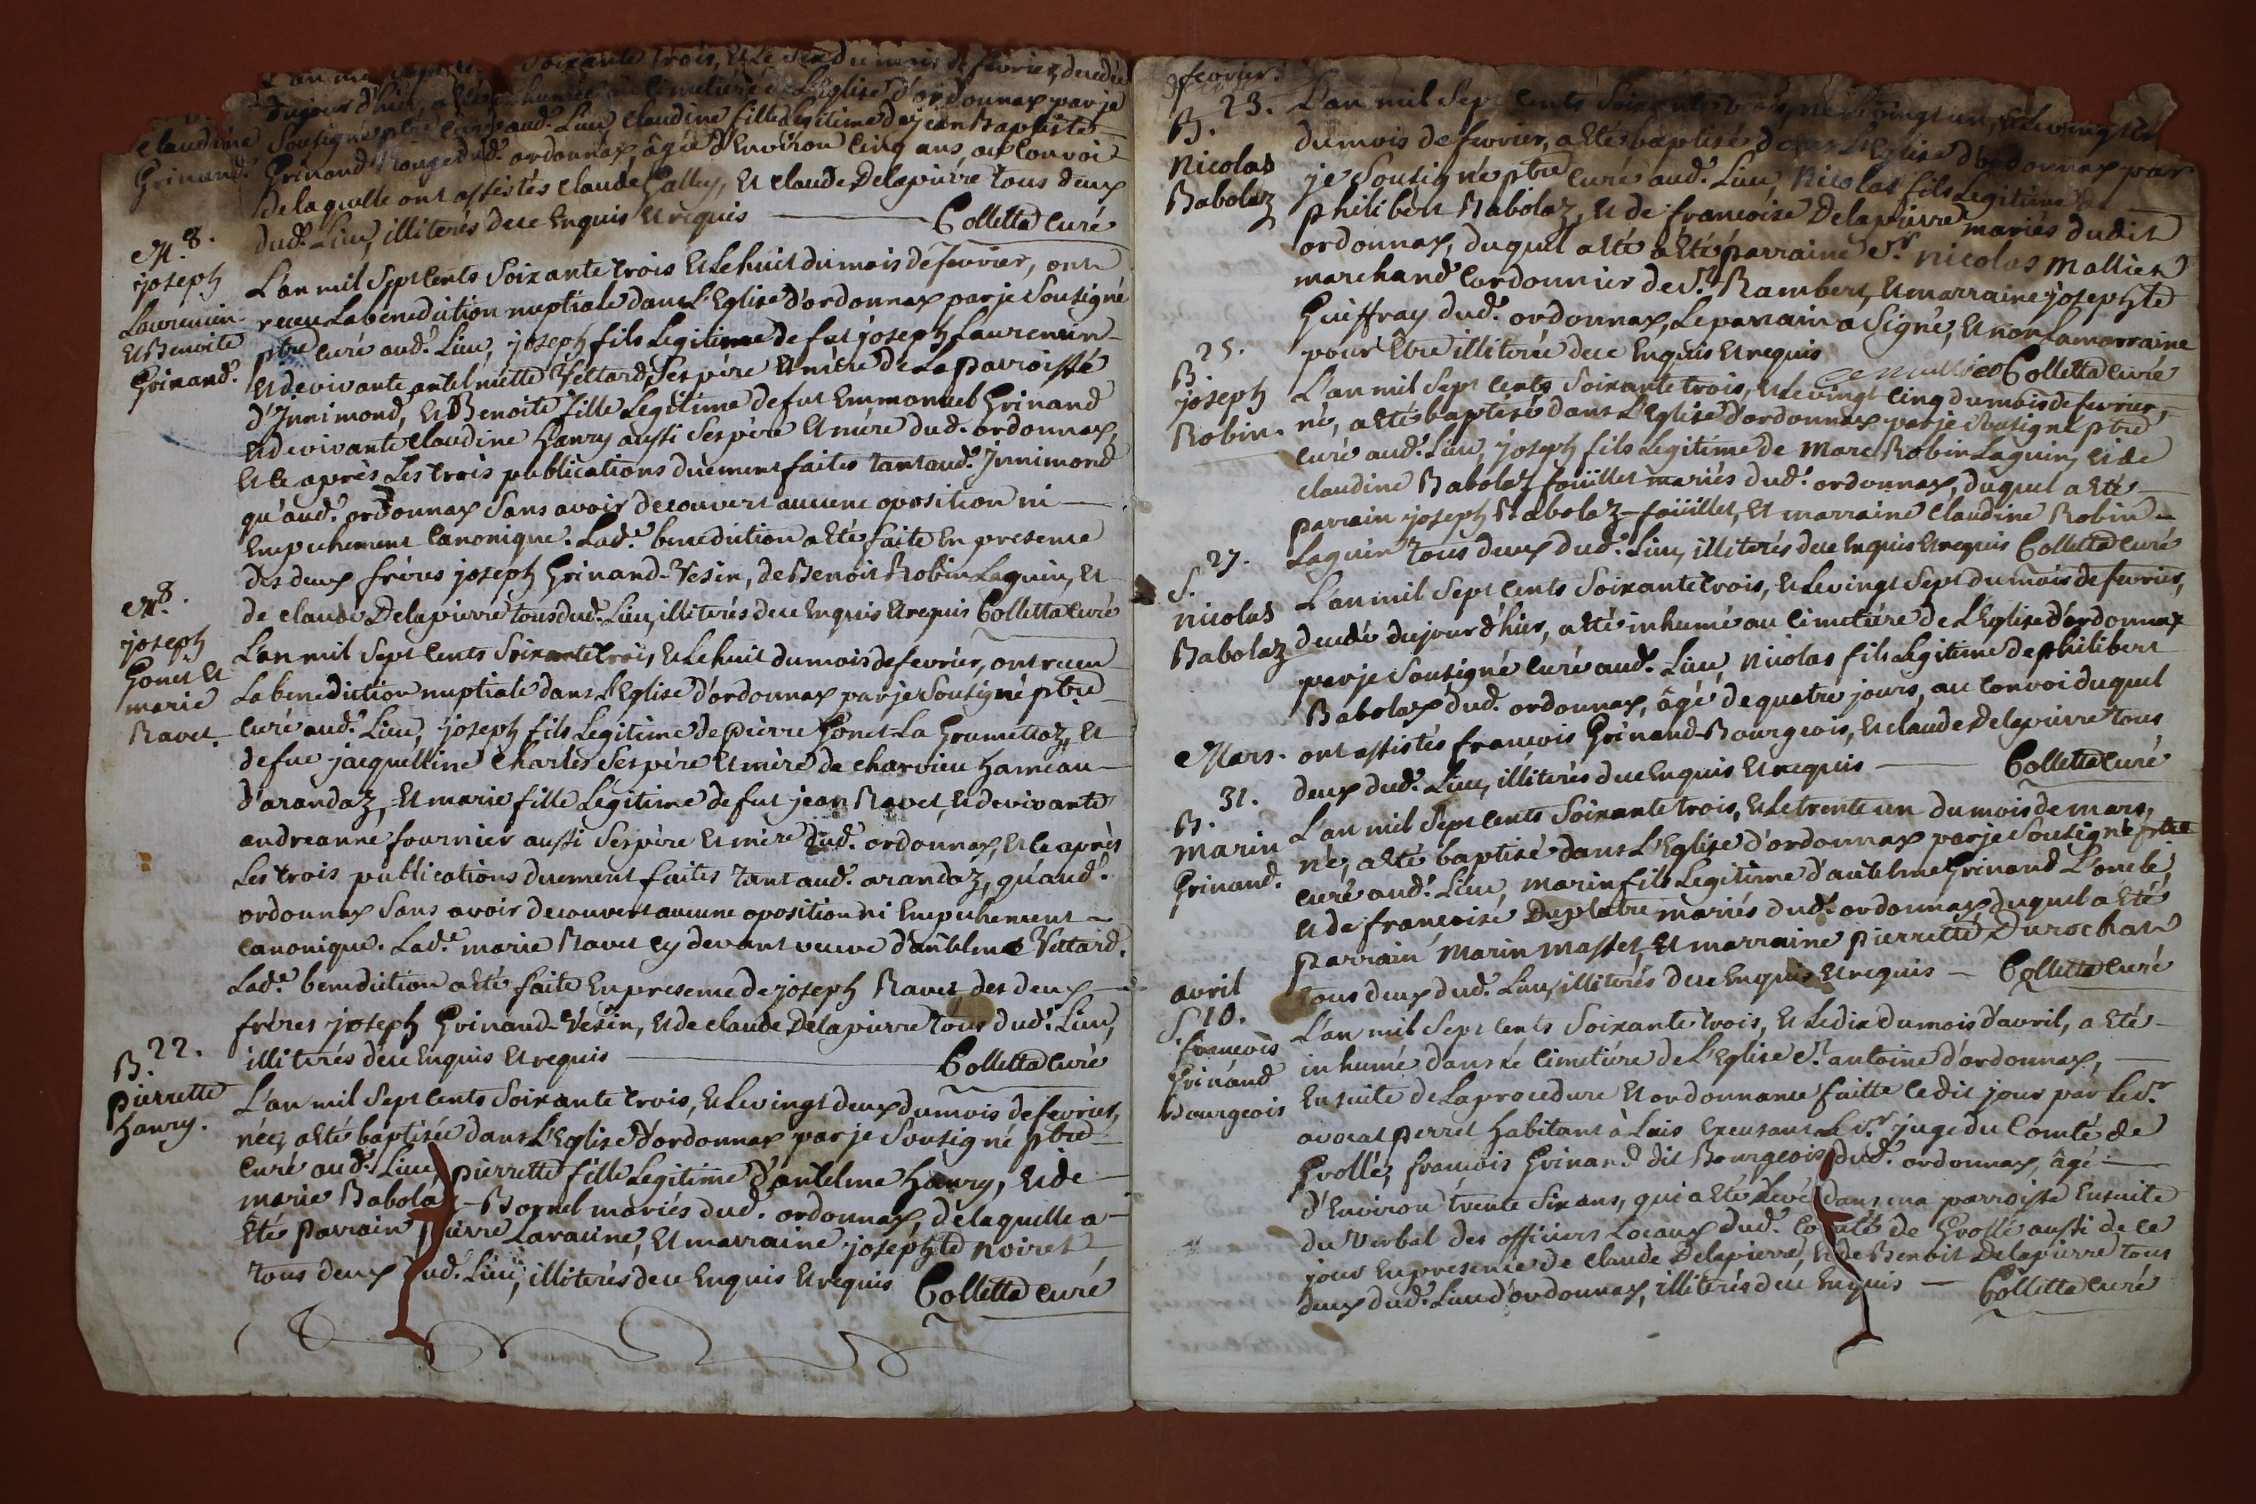 L'an mil sept cents soixante trois, et le six du mois de fevrier, decedée
du jour d'hier, a eté inhumée au cimetiere de L'Eglise d'ordonnax par je
Claudine
Grinand.
Sousigné ptre curé aud.t Lieu, Claudine fille Legitime de jean Baptiste
Grinand Rouge dud.t ordonnax, âgée d'Environ Cinq ans au Convoi
de laquelle ont assistés claude Gallay, et claude Delapierre tous deux
dud.t Lieu, illiterés de ce Enquis et requis — Colletta Curé
M. 8.
joseph
Laurencin
et Benoite
Grinand.
L'an mil Sept Cents Soixante trois et Le huit du mois de fevrier, ont
receu La benediction nuptiale dans L'Eglise d'ordonnax par je Sousigné
ptre curé aud.t Lieu, joseph fils Legitime de fut joseph Laurencin
et de vivante antelmette Vettard, Ses père et mère de La paroisse
d'Innimond, et Benoite fille Legitime de fut Emmanuel Grinand
et de vivante claudine hanry aussi Ses père et mère dud.t ordonnax,
et ce après Les trois publications duement faites tant aud.t Innimond
qu'aud.t ordonnax Sans avoir decouvert aucune oposition ni —
Empechement Canonique. Lad.e benediction a eté faite En presence
des deux frères joseph Grinand-Vesin, de Benoit Robin Laguin, et
de claude Delapierre tous dud.t Lieu, illiterés de ce Enquis et requis Colletta Curé
M. 8.
joseph
Gonet et
marie
Ravet.
L'an mil Sept Cents Soixante trois, et Le huit du mois de fevrier, ont receu
La benediction nuptiale dans L'Eglise d'ordonnax par je Sousigné ptre
Curé aud.t Lieu, joseph fils Legitime de pierre Gonet-La Grumettaz, et
de fue jacquelline charles Ses père et mère de charvieu hameau
d'arandaz, et marie fille Légitime de fut jean Ravet, et de vivante
andreanne fournier aussi Ses père et mère dud.t ordonnax, et ce après
Les trois publications duement faites tant aud.t arandaz, qu'aud.t
ordonnax Sans avoir decouvert aucune oposition ni Empechement
canonique. Lad.e marie Ravet cy devant veuve d'antelme Vettard.
Lad.e benediction a eté faite En presence de joseph Ravet, des deux
frères joseph Grinand-Vesin, et de claude Delapierre tous dud.t Lieu,
illiterés de ce Enquis et requis — Colletta Curé
B. 22.
pierrette
hanry.
L'an mil Sept Cents Soixante trois, et Le vingt deux du mois de fevrier,
née, a eté baptisée dans L'Eglise d'ordonnax par je Sousigné ptre
Curé aud.t Lieu, pierrette fille Legitime d'antelme hanry, et de
marie Babolaz-Bornel mariés dud.t ordonnax, de laquelle a
Eté parrain pierre Laracine, et marraine josephte noiret
tous deux dud.t Lieu, illiterés de ce Enquis et requis Colletta curé
fevrier.
B. 23.
Nicolas
Babolaz
L'an mil Sept Cents Soixante trois, né Le vingt un, et Le vingt trois
du mois de fevrier, a eté baptisé dans L'Eglise d'ordonnax par
je Sousigné ptre curé aud.t Lieu, Nicolas fils Legitime de
philibert Babolaz, et de francoise Delapierre mariés dudit
ordonnax, duquel a eté a eté parrain S.r nicolas Mallier
marchand Cordonnier de S.t Rambert, et marraine josephte
Guiffray dud.t ordonnax, Le parrain a Signé, et non La marraine
pour être illiterée de ce Enquis et requis
Colletta Curé
B. 25.
joseph
Robin.
L'an mil Sept Cents Soixante trois, et Le vingt Cinq du mois de fevrier,
né, a eté baptisé dans L'Eglise d'ordonnax par je Sousigné ptre
Curé aud.t Lieu, joseph fils Legitime de Marc Robin Laguin, et de
claudine Babolaz foüillet mariés dud.t ordonnax, duquel a eté
parrain joseph Babolaz-foüillet, et marraine Claudine Robin
Laguin tous deux dud.t Lieu, illiterés de ce Enquis et requis Colletta Curé
S. 27.
nicolas
Babolaz
L'an mil Sept Cents Soixante trois, et Le vingt Sept du mois de fevrier,
decedé du jour d'hier, a eté inhumé au Cimetiére de L'Eglise d'ordonnax
par je Sousigné curé aud.t Lieu, Nicolas fils Legitime de philibert
Babolax dud.t ordonnax, âgé de quatre jours, au Convoi duquel
ont assistés francois Grinand-Bourgeois, et claude Delapierre tous
deux dud.t Lieu, illiterés de ce Enquis et requis — Colletta Curé
Mars.
B. 31.
Marin
Grinand.
L'an mil Sept Cents Soixante trois, et Le trente un du mois de mars,
né, a eté baptisé dans L'Eglise d'ordonnax par je Sousigné ptre
curé aud.t Lieu, Marin fils Legitime d'antelme Grinand L'oncle,
et de francoise Duplatre mariés dud.t ordonnax duquel a eté
parrain Marin Masset, et marraine pierrette Durochat
tous deux dud.t Lieu, illiterés de ce Enquis et requis — Colletta Curé
avril
S. 10.
francois
Grinand
Bourgeois
L'an mil Sept Cents Soixante trois, et Le dix du mois d'avril, a eté
inhumé dans Le Cimetiére de L'Eglise S.t antoine d'ordonnax, —
En suite de La procedure et ordonnance faitte Ce dit jour par Le S.r
avocat perret habitant à Luis Excusant Le S.r juge du Comté de
Grollée, francois Grinand dit Bourgeois dud.t ordonnax, âgé —
d'Environ trente Six ans, qui a eté Levé dans ma parroisse Ensuite
du Verbal des officiers Locaux dud.t Comté de Grollé aussi de ce
jour En presence de Claude Delapierre, et de Benoit Delapierre tous
deux dud.t Lieu d'ordonnax, illiterés de ce Enquis — Colletta Curé